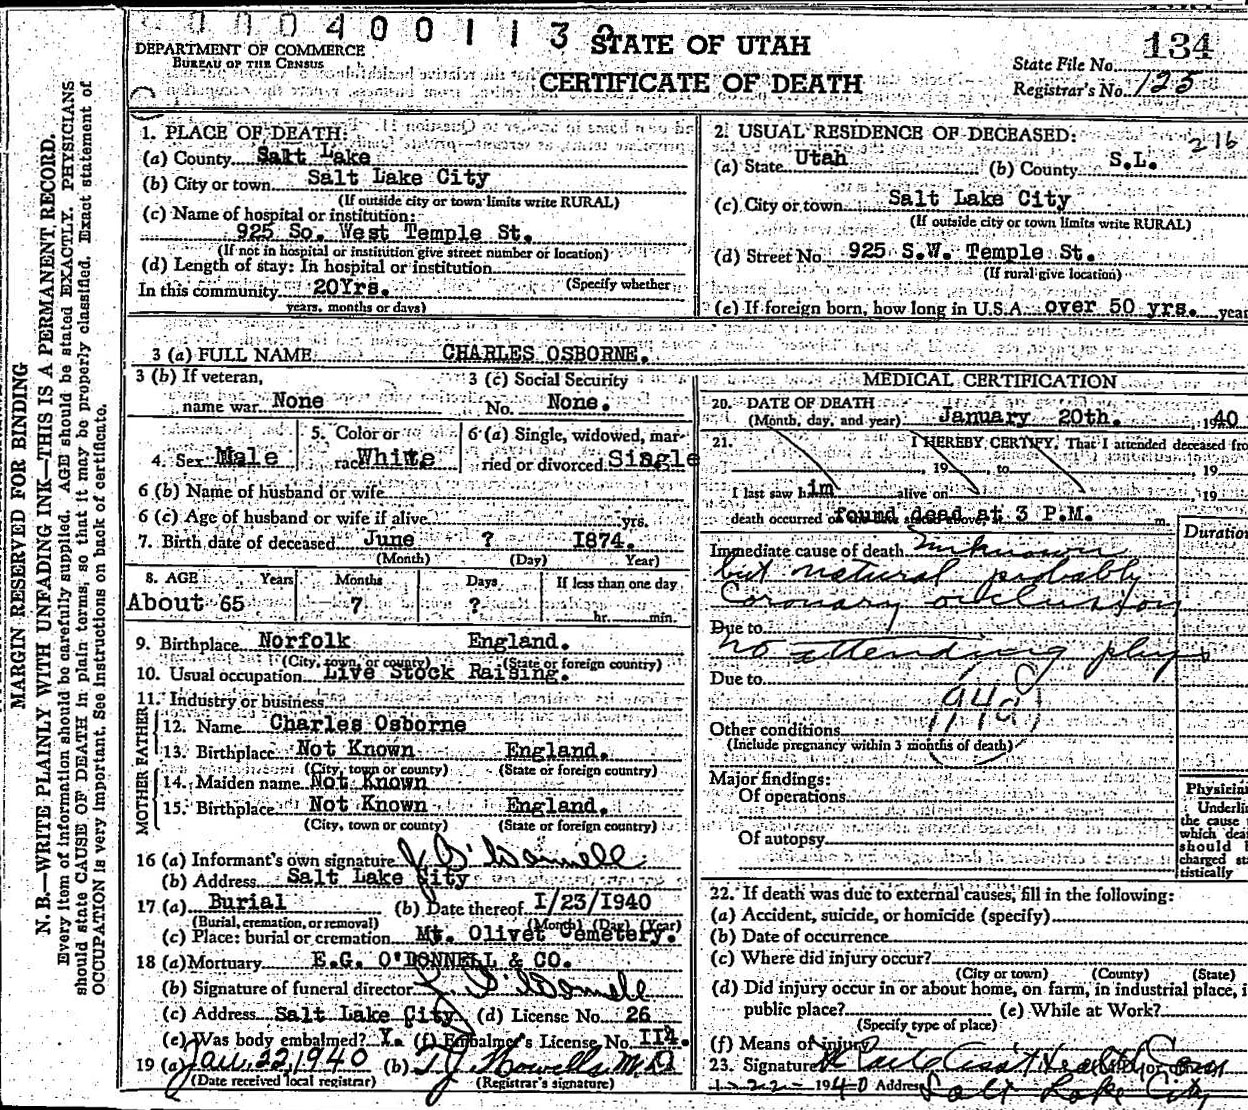 0004001130
DEPARTMENT OF COMMERCE
BUREAU OF THE CENSUS
STATE OF UTAH
CERTIFICATE OF DEATH
134
State File No.
Registrar's No. 125
MARGIN RESERVED FOR BINDING
N. B.—WRITE PLAINLY WITH UNFADING INK—THIS IS A PERMANENT RECORD.
Every item of information should be carefully supplied. AGE should be stated EXACTLY. PHYSICIANS
should state CAUSE OF DEATH in plain terms, so that it may be properly classified. Exact statement of
OCCUPATION is very important. See instructions on back of certificate.
1. PLACE OF DEATH:
(a) County Salt Lake
(b) City or town Salt Lake City
(If outside city or town limits write RURAL)
(c) Name of hospital or institution:
925 So. West Temple St.
(If not in hospital or institution give street number or location)
(d) Length of stay: In hospital or institution
(Specify whether
In this community 20Yrs.
years, months or days)
2. USUAL RESIDENCE OF DECEASED:
216
(a) State Utah (b) County S.L.
(c) City or town Salt Lake City
(If outside city or town limits write RURAL)
(d) Street No. 925 S.W. Temple St.
(If rural give location)
(e) If foreign born, how long in U.S.A. over 50 yrs. year
3 (a) FULL NAME CHARLES OSBORNE.
3 (b) If veteran, name war None
3 (c) Social Security No. None.
4. Sex Male
5. Color or race White
6 (a) Single, widowed, married or divorced Single
6 (b) Name of husband or wife
6 (c) Age of husband or wife if alive yrs.
7. Birth date of deceased June ? 1874.
(Month) (Day) Year)
8. AGE Years Months Days If less than one day
About 65 7 ? hr. min.
9. Birthplace Norfolk England.
(City, town, or county) (State or foreign country)
10. Usual occupation Live Stock Raising.
11. Industry or business
FATHER
12. Name Charles Osborne
13. Birthplace Not Known England.
(City, town or county) (State or foreign country)
MOTHER
14. Maiden name Not Known
15. Birthplace Not Known England.
(City, town or county) (State or foreign country)
16 (a) Informant's own signature J O'Donnell
(b) Address Salt Lake City
17 (a) Burial (b) Date thereof 1/23/1940
(Burial, cremation, or removal) (Month) (Day) (Year)
(c) Place: burial or cremation Mt. Olivet Cemetery.
18 (a) Mortuary E.G. O'DONNELL & CO.
(b) Signature of funeral director O'Donnell
(c) Address Salt Lake City (d) License No. 26
(e) Was body embalmed? Y. (f) Embalmer's License No. 114.
19 (a) Jan. 22, 1940 (b) T.J. Howells, M.D.
(Date received local registrar) (Registrar's signature)
MEDICAL CERTIFICATION
20. DATE OF DEATH
(Month, day, and year) January 20th. 1940
21. I HEREBY CERTIFY, That I attended deceased fro
, 19 , to , 19
I last saw him alive on , 19
death occurred found dead at 3 P.M. m.
Duration
Immediate cause of death Unknown
but natural probably
Coronary occlusion
Due to
no attending phys
Due to
94a
Other conditions
(Include pregnancy within 3 months of death)
Major findings:
Of operations
Of autopsy
Physician
Underline
the cause
which dea
should b
charged sta
tistically
22. If death was due to external causes, fill in the following:
(a) Accident, suicide, or homicide (specify)
(b) Date of occurrence
(c) Where did injury occur?
(City or town) (County) (State)
(d) Did injury occur in or about home, on farm, in industrial place, i
public place? (e) While at Work?
(Specify type of place)
(f) Means of injury
23. Signature Asst Health Com
1-22-1940 Address Salt Lake City